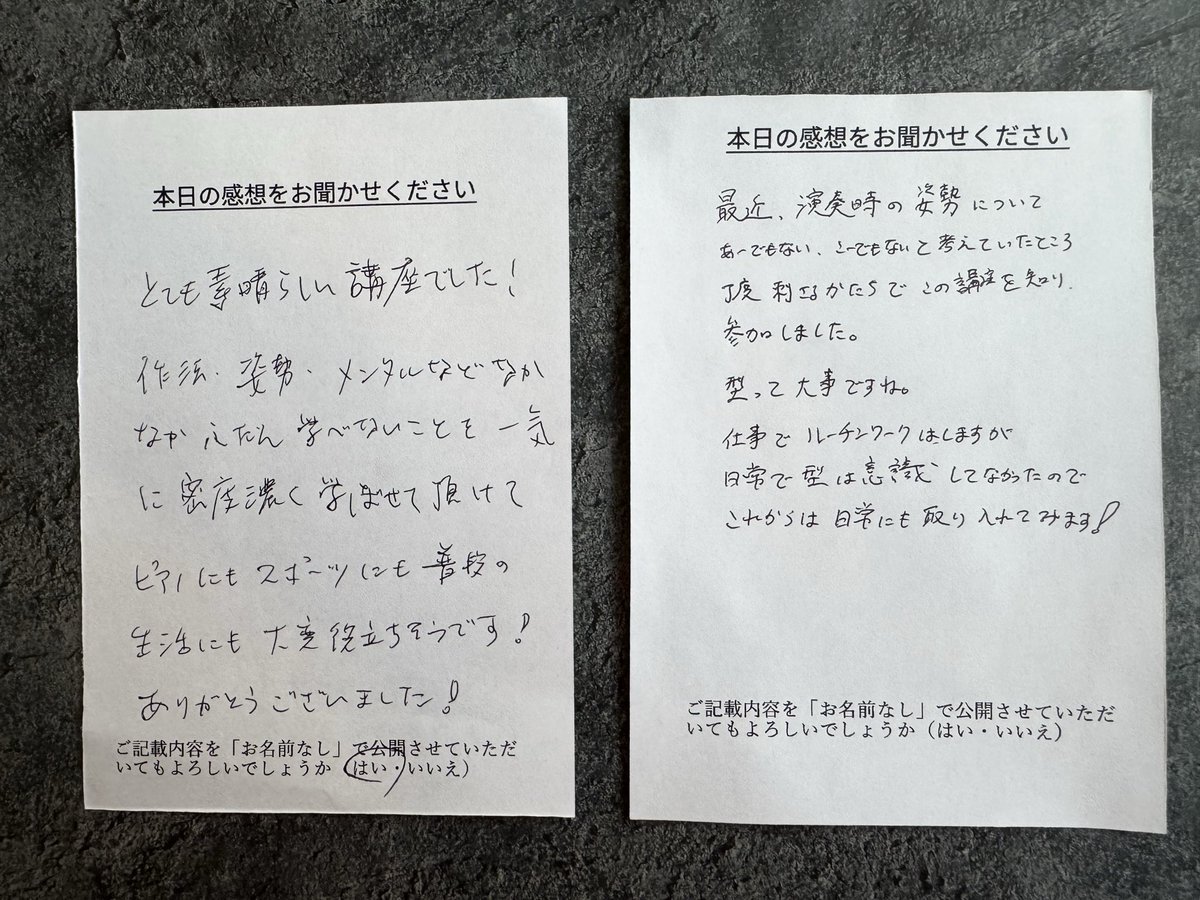 本日の感想をお聞かせください
とても素晴らしい講座でした!
作法・姿勢・メンタルなどなか
なかふだん学べないことを一気
に密度濃く学ばせて頂けて
ピアノにもスポーツにも普段の
生活にも大変役立ちそうです!
ありがとうございました!
ご記載内容を「お名前なし」で公開させていただ
いてもよろしいでしょうか(はい・いいえ)
本日の感想をお聞かせください
最近、演奏時の姿勢について
あーでもない、こーでもないと考えていたところ
かたちでこの講座を知り、
参加しました。
型って大事ですね。
仕事でルーチンワークはしますが
日常で型は意識してなかったので
これからは日常にも取り入れてみます!
ご記載内容を「お名前なし」で公開させていただ
いてもよろしいでしょうか(はい・いいえ)